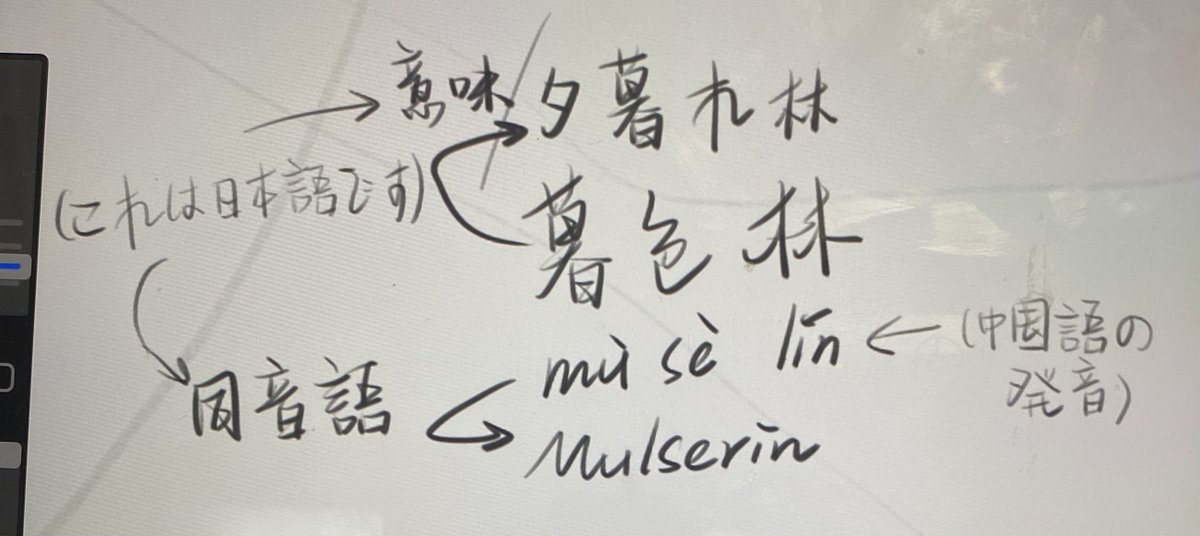 →意味 夕暮れ林
(これは日本語です)
暮色林
mù sè lín ← (中国語の
発音)
同音語
Mulserin